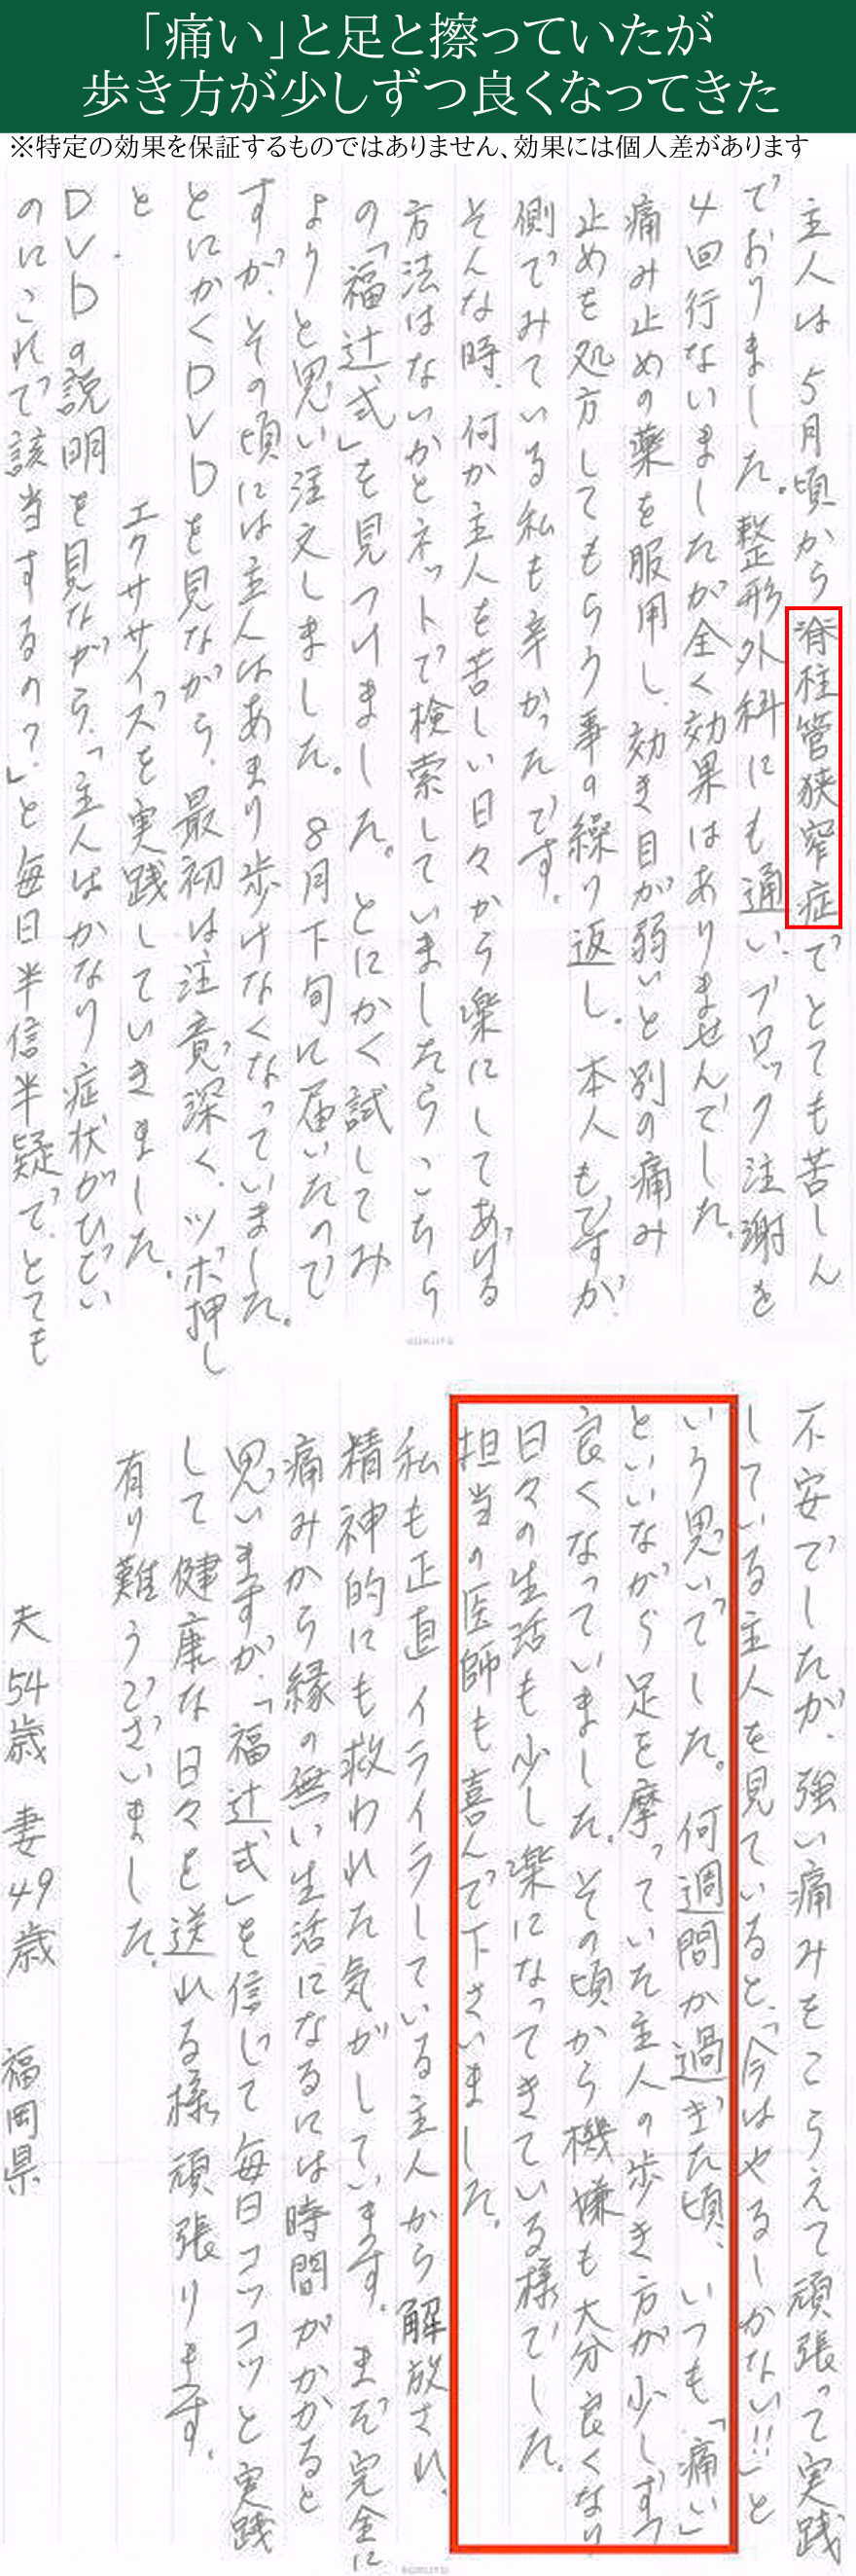 「痛い」と足と擦っていたが
歩き方が少しずつ良くなってきた
※特定の効果を保証するものではありません、効果には個人差があります
主人は5月頃から脊柱管狭窄症でとても苦しん
でおりました。整形外科にも通い、ブロック注謝を
4回行ないましたが全く効果はありませんでした。
痛み止めの薬を服用し、効き目が弱いと別の痛み
止めを処方してもらう事の繰り返し。本人もですが、
側でみている私も辛かったです。
そんな時、何か主人を苦しい日々から楽にしてあげる
方法はないかとネットで検索していましたらこちら
の「福辻式」を見つけました。とにかく試してみ
ようと思い注文しました。8月下旬に届いたので
すが、その頃には主人はあまり歩けなくなっていました。
とにかくDVDを見ながら、最初は注意深く、ツボ押し
と、エクササイズを実践していきました。
DVDの説明を見ながら、「主人はかなり症状がひどい
のにこれで該当するの?」と毎日半信半疑で、とても
不安でしたが、強い痛みをこらえて頑張って実践
している主人を見ていると、「今はやるしかない!!」と
いう思いでした。何週間か過ぎた頃、いつも「痛い」
といいながら足を摩っていた主人の歩き方が少しずつ
良くなっていました。その頃から機嫌も大分良くなり
日々の生活も少し楽になってきている様でした。
担当の医師も喜んで下さいました。
私も正直イライラしている主人から解放され、
精神的にも救われた気がしています。まだ完全に
痛みから縁の無い生活になるには時間がかかると
思いますが、「福辻式」を信じて毎日コツコツと実践
して健康な日々を送れる様頑張ります。
有り難うございました。
夫54歳 妻49歳 福岡県